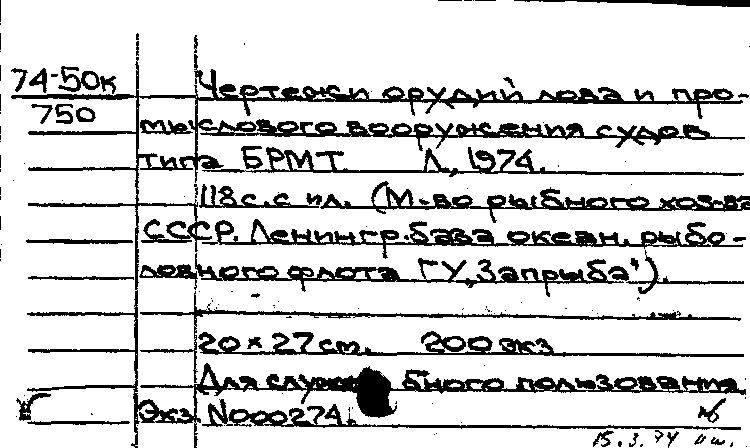 74-50к
750
Чертежи орудий лова и про-
мыслового вооружения судов
типа БРМТ. Л., 1974.
118 с. с ил. (М-во рыбного хоз-ва
СССР. Ленингр. база океан. рыбо-
ловного флота ГУ "Запрыба").
20 x 27 см. 200 экз.
Для служебного пользования.
Экз. N000274.
15.3.74